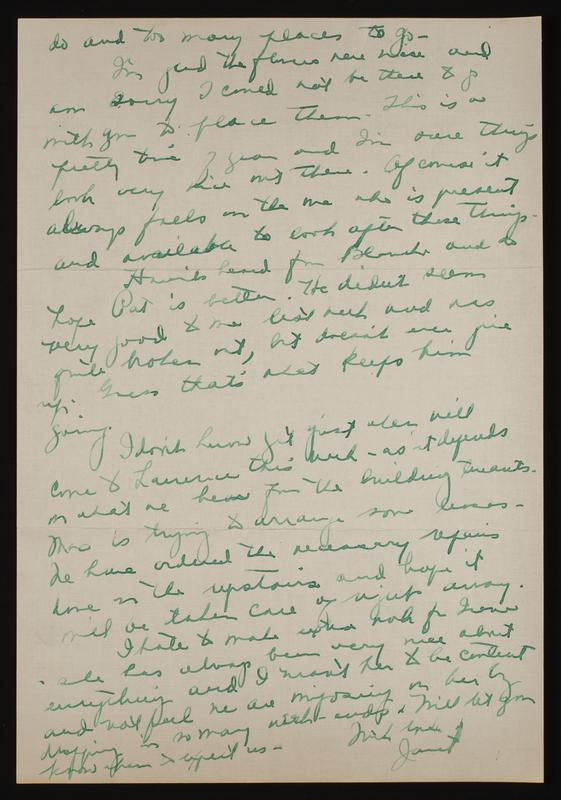 do and too many places to go -
I'm glad the flowers were nice and
am sorry I could not be there to go
with you to place them. This is a
pretty time of year and I'm sure things
look very nice out there. Of course it
always falls on the one who is present
and available to look after these things.
Haven't heard from Blanche and do
hope Pat is better. He didn't seem
very good to me last week and was
quite broken out, but doesn't ever give
up. Guess that's what keeps him
going.
I don't know yet just when will
come to Lawrence this week - as it depends
on what we hear from the building tenants.
is trying to arrange some leases -
We have ordered the necessary repairs
done on the upstairs and hope it
will be taken care of right away.
I hate to make extra work for
- she has always been very nice about
everything and I want her to be content
and not feel we are imposing on her by
dropping in so many week-ends. Will let you
know when to expect us -
With love
Janet